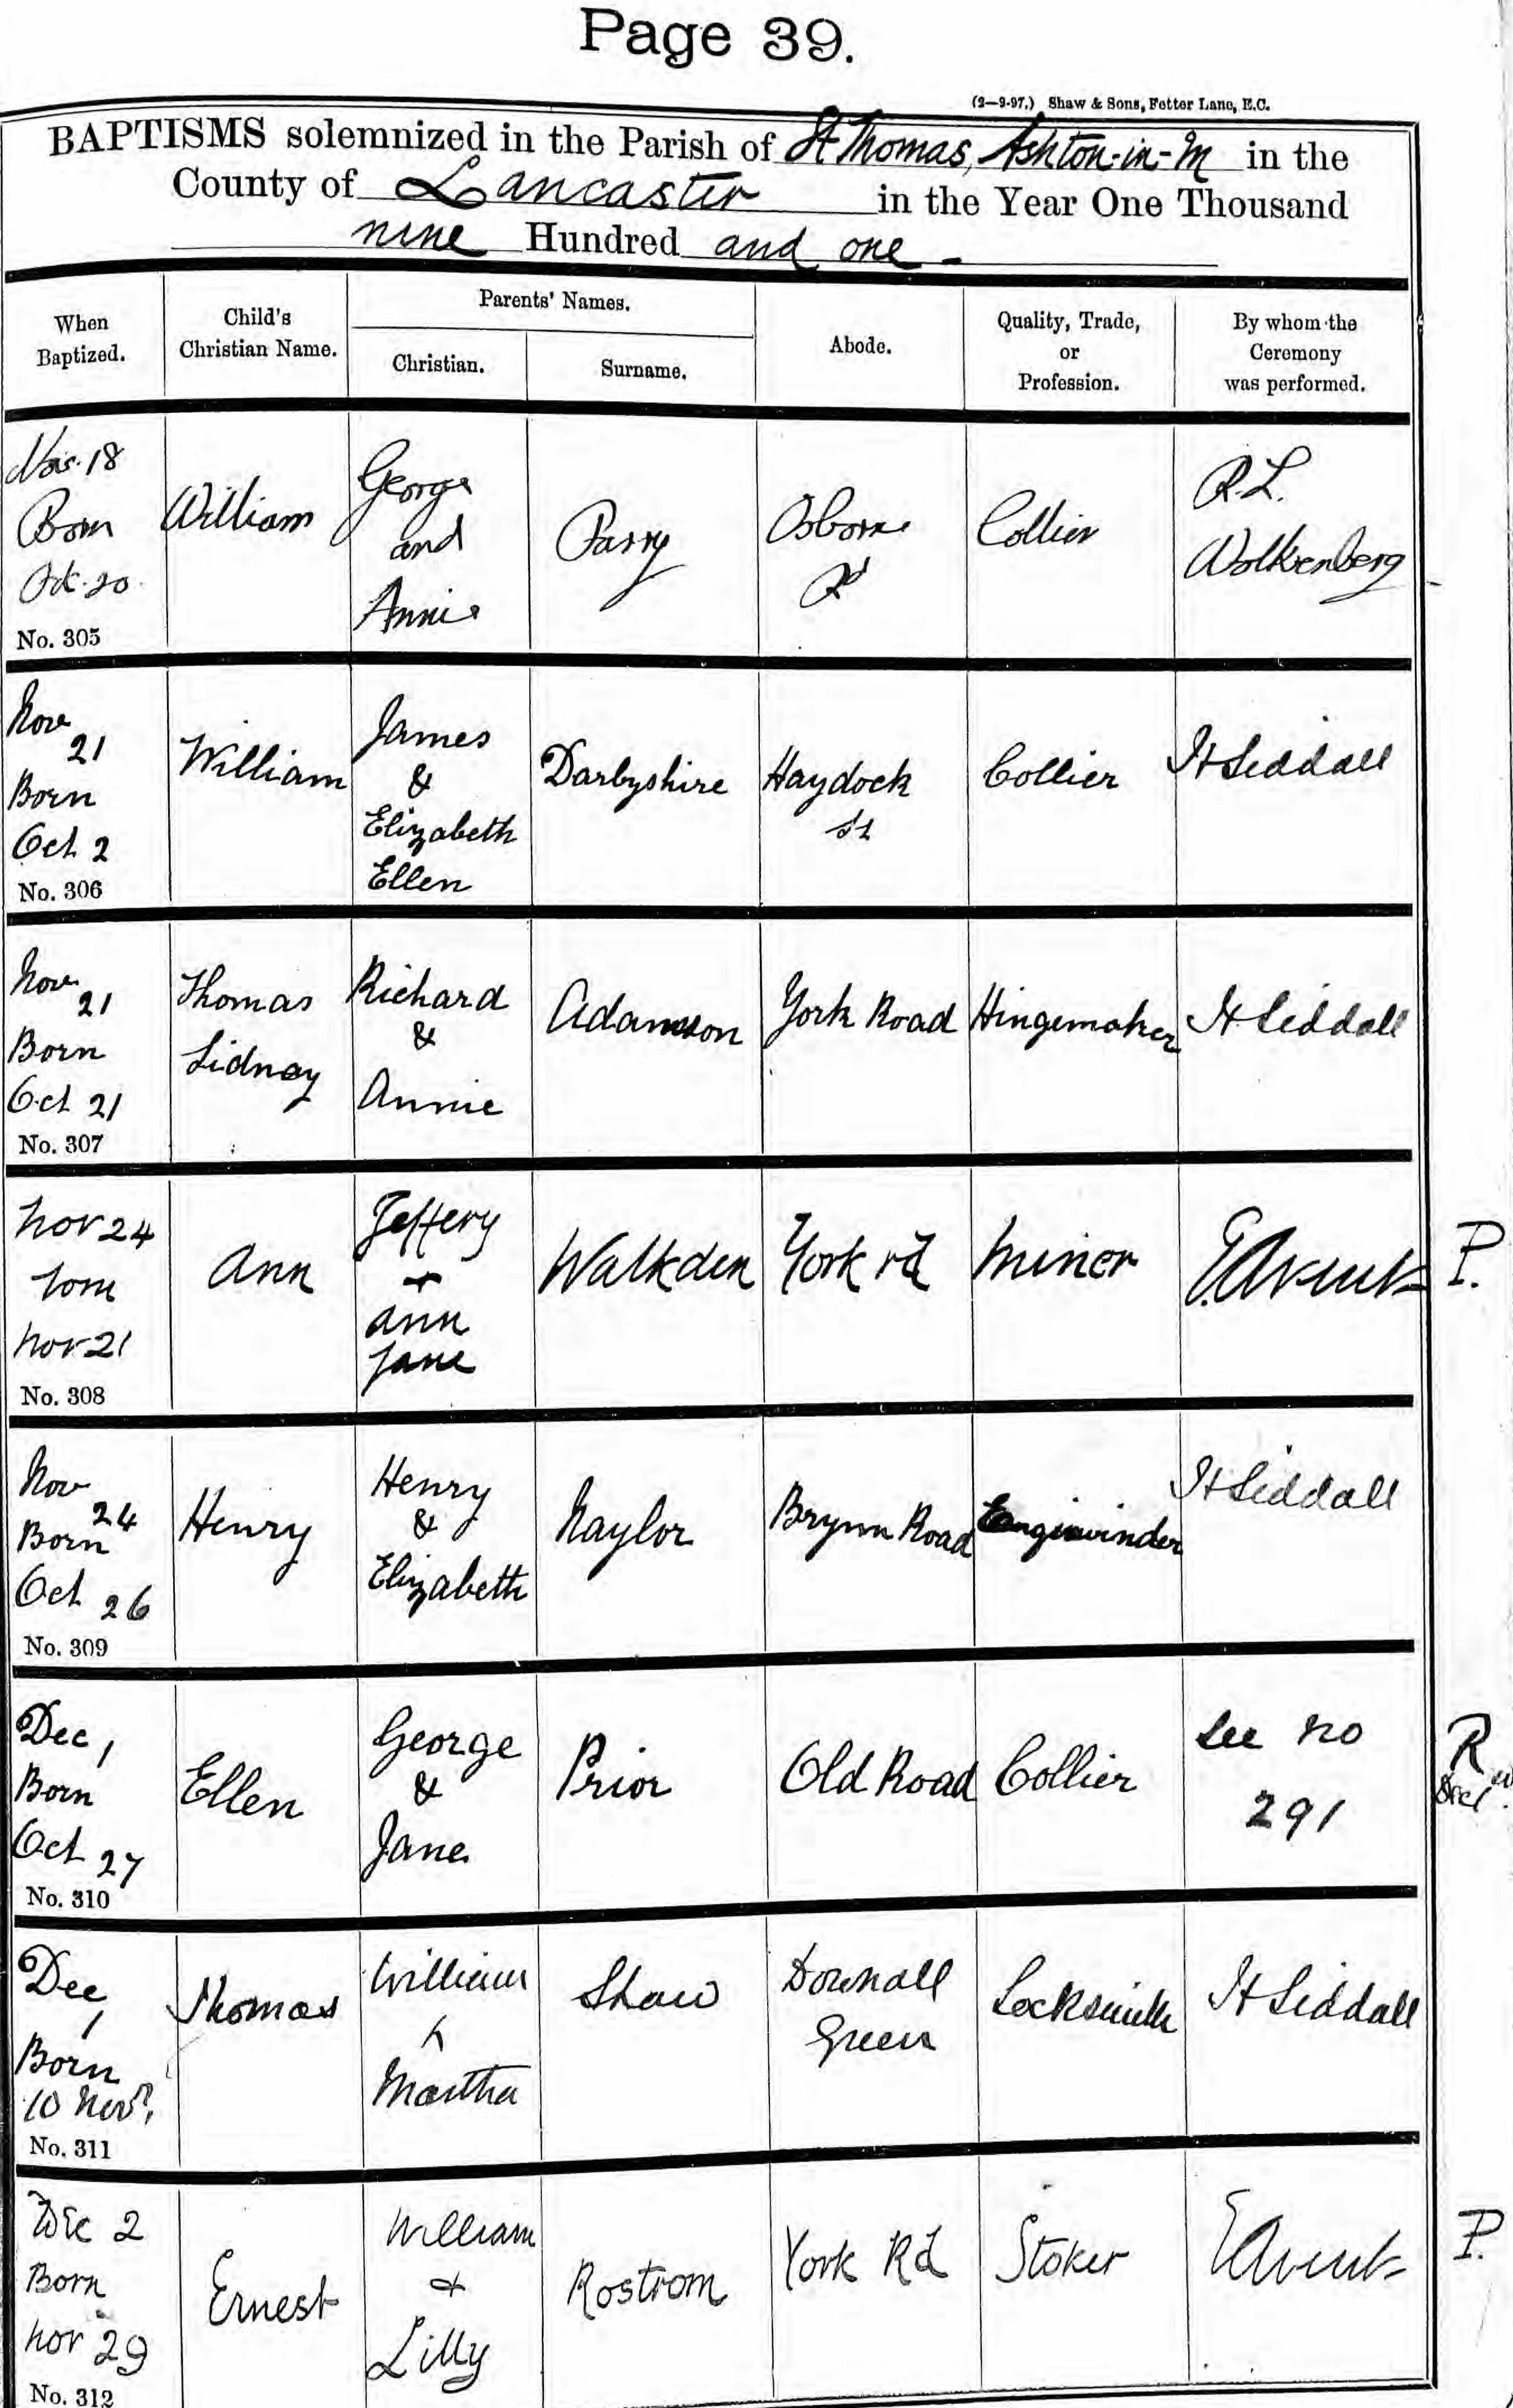 Page 39.
(2—9-97.) Shaw & Sons, Fetter Lane, E.C.
BAPTISMS solemnized in the Parish of St Thomas, Ashton-in-M in the
County of Lancaster in the Year One Thousand
nine Hundred and one -
When Baptized. Child's Christian Name. Parents' Names. Abode. Quality, Trade, or Profession. By whom the Ceremony was performed.
Christian. Surname.
Nov. 18 Born Oct. 20 William George and Annie Parry Osborne Rd Collier R.L. Wolkenberg
No. 305
Nov 21 Born Oct 2 William James & Elizabeth Ellen Darbyshire Haydock St Collier H Siddall
No. 306
Nov 21 Born Oct 21 Thomas Sidney Richard & Annie Adamson York Road Hingemaker H Siddall
No. 307
Nov 24 born Nov 21 Ann Jeffery + Ann Jane Walkden York rd Miner P.
No. 308
Nov 24 Born Oct 26 Henry Henry & Elizabeth Naylor Brynn Road Enginwinder H Siddall
No. 309
Dec 1 Born Oct 27 Ellen George & Jane Prior Old Road Collier See no 291 R
No. 310
Dec 1 Born 10 Novr. Thomas William & Martha Shaw Downall Green Locksmith H Siddall
No. 311
Dec 2 Born Nov 29 Ernest William + Lilly Rostrom York Rd Stoker P.
No. 312